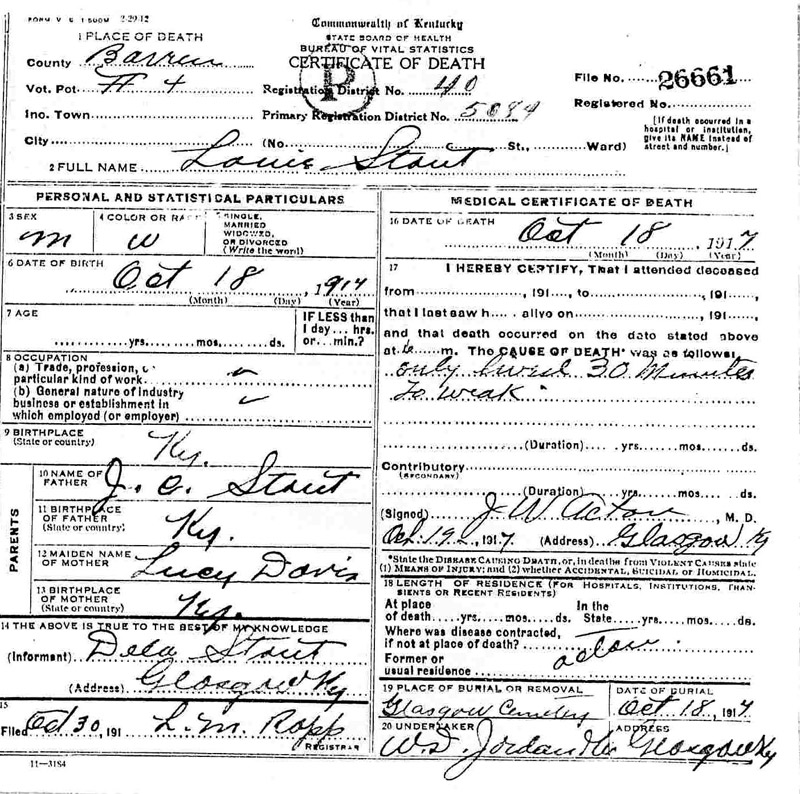 FORM V S 1 500M 2-20-12
Commonwealth of Kentucky
STATE BOARD OF HEALTH
BUREAU OF VITAL STATISTICS
CERTIFICATE OF DEATH
1 PLACE OF DEATH
County Barren
Vot. Pct # 4
Inc. Town
City
Registration District No. 40
Primary Registration District No. 5084
(No. St., Ward)
File No. 26661
Registered No.
[If death occurred in a hospital or institution, give its NAME instead of street and number.]
P
2 FULL NAME Louie Stout
PERSONAL AND STATISTICAL PARTICULARS
3 SEX
m
4 COLOR OR RACE
w
SINGLE,
MARRIED
WIDOWED,
OR DIVORCED
(Write the word)
6 DATE OF BIRTH
Oct 18, 1917
(Month) (Day) (Year)
7 AGE
yrs. mos. ds.
IF LESS than
1 day... hrs.
or... min.?
8 OCCUPATION
(a) Trade, profession, or
particular kind of work
(b) General nature of industry
business or establishment in
which employed (or employer)
9 BIRTHPLACE
(State or country)
Ky.
PARENTS
10 NAME OF
FATHER
J. C. Stout
11 BIRTHPLACE
OF FATHER
(State or country)
Ky.
12 MAIDEN NAME
OF MOTHER
Lucy Davis
13 BIRTHPLACE
OF MOTHER
(State or country)
Ky.
14 THE ABOVE IS TRUE TO THE BEST OF MY KNOWLEDGE
(Informant) Dela Stout
(Address) Glasgow Ky
15
Filed Oct 30, 191 L. M. Ropp
REGISTRAR
11-3184
MEDICAL CERTIFICATE OF DEATH
16 DATE OF DEATH
Oct 18, 1917
(Month) (Day) (Year)
17 I HEREBY CERTIFY, That I attended deceased
from , 191 , to , 191 ,
that I last saw h alive on , 191 ,
and that death occurred on the date stated above
at 6 m. The CAUSE OF DEATH* was as follows:
only lived 30 Minutes
to weak
(Duration) yrs. mos. ds.
Contributory
(SECONDARY)
(Duration) yrs. mos. ds.
(Signed) J W Acton, M. D.
Oct. 19, 1917 (Address) Glasgow Ky
*State the DISEASE CAUSING DEATH, or, in deaths from VIOLENT CAUSES state
(1) MEANS OF INJURY; and (2) whether ACCIDENTAL, SUICIDAL or HOMICIDAL.
18 LENGTH OF RESIDENCE (FOR HOSPITALS, INSTITUTIONS, TRANSIENTS OR RECENT RESIDENTS)
At place
of death yrs. mos. ds.
In the
State yrs. mos. ds.
Where was disease contracted,
if not at place of death?
Former or
usual residence
Acton
19 PLACE OF BURIAL OR REMOVAL
Glasgow Cemetery
DATE OF BURIAL
Oct 18, 1917
20 UNDERTAKER
W. D. Jordan
ADDRESS
Glasgow Ky